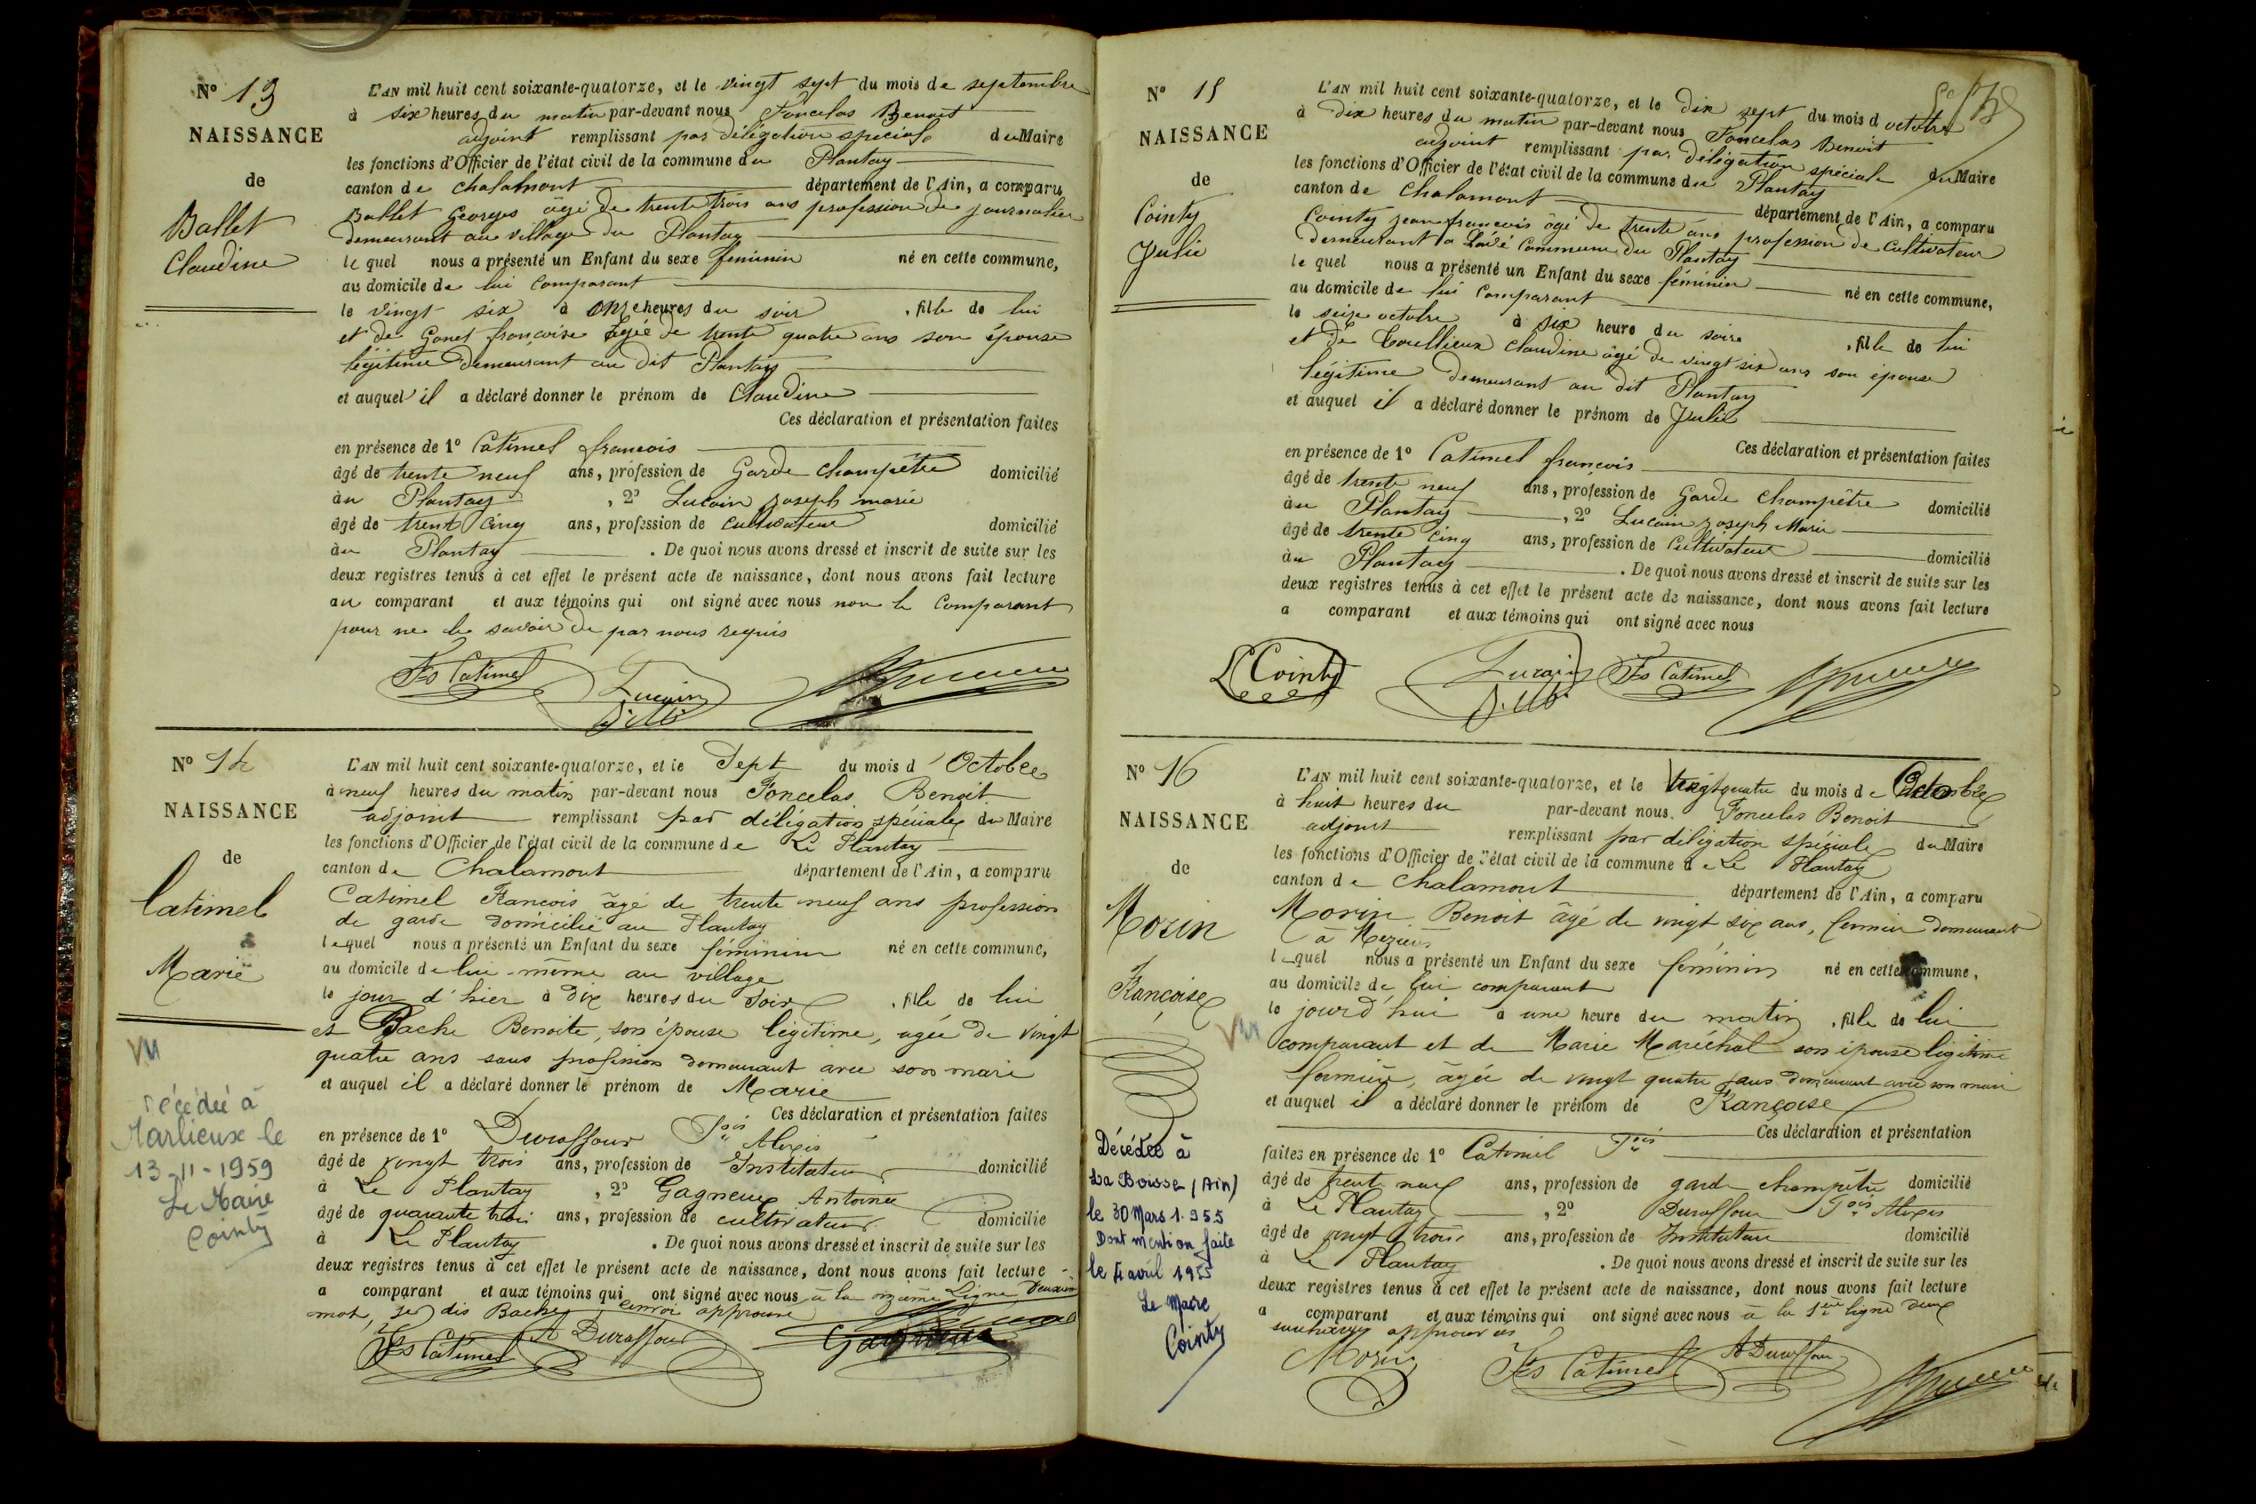 N° 13
NAISSANCE
de
Ballet
Claudine
L'AN mil huit cent soixante-quatorze, et le vingt sept du mois de septembre
à six heures du matin par-devant nous Foncelas Benoit
adjoint remplissant par délégation spéciale du Maire
les fonctions d'Officier de l'état civil de la commune du Plantay
canton de chalamont département de l'Ain, a comparu
Ballet Georges âgé de trente trois ans profession de journalier
demeurant au village du Plantay
le quel nous a présenté un Enfant du sexe féminin né en cette commune,
au domicile de lui comparant
le vingt six à onze heures du soir, fille de lui
et de Gonet françoise âgée de trente quatre ans son épouse
légitime demeurant au dit Plantay
et auquel il a déclaré donner le prénom de Claudine
Ces déclaration et présentation faites
en présence de 1° Catimel françois
âgé de trente neuf ans, profession de Garde champêtre domicilié
au Plantay, 2° Lucain joseph marie
âgé de trente cinq ans, profession de cultivateur domicilié
au Plantay. De quoi nous avons dressé et inscrit de suite sur les
deux registres tenus à cet effet le présent acte de naissance, dont nous avons fait lecture
au comparant et aux témoins qui ont signé avec nous non le comparant
pour ne le savoir de par nous requis
Fs Catimel Lucain
N° 14
NAISSANCE
de
Catimel
Marie
Vu
décédée à
Marlieux le
13-11-1959
Le Maire
Cointy
L'AN mil huit cent soixante-quatorze, et le Sept du mois d'Octobre
à neuf heures du matin par-devant nous Foncelas Benoit
adjoint remplissant par délégation spéciale du Maire
les fonctions d'Officier de l'état civil de la commune de Le Plantay
canton de Chalamont département de l'Ain, a comparu
Catimel François âgé de trente neuf ans profession
de garde domicilié au Plantay
lequel nous a présenté un Enfant du sexe féminin né en cette commune,
au domicile de lui-même au village
le jour d'hier à Dix heures du Soir, fille de lui
et Bache Benoite, son épouse légitime, agée de vingt
quatre ans sans profession demeurant avec son mari
et auquel il a déclaré donner le prénom de Marie
Ces déclaration et présentation faites
en présence de 1° Duraffour Fois Alexis
âgé de vingt trois ans, profession de Instituteur domicilié
à Le Plantay, 2° Gagneux Antoine
âgé de quarante trois ans, profession de cultivateur domicilié
à Le Plantay. De quoi nous avons dressé et inscrit de suite sur les
deux registres tenus à cet effet le présent acte de naissance, dont nous avons fait lecture
a comparant et aux témoins qui ont signé avec nous à la onzième ligne, deuxième
mot, je dis Bache, renvoi approuvé
Fs Catimel A Duraffour Gagneux
N° 15
NAISSANCE
de
Cointy
Julie
L'AN mil huit cent soixante-quatorze, et le dix sept du mois d octobre
à dix heures du matin par-devant nous Foncelas Benoit
adjoint remplissant par délégation spéciale du Maire
les fonctions d'Officier de l'état civil de la commune du Plantay
canton de Chalamont département de l'Ain, a comparu
Cointy jean françois âgé de trente ans profession de cultivateur
demeurant a commune du Plantay
le quel nous a présenté un Enfant du sexe féminin né en cette commune,
au domicile de lui comparant
le seize octobre à six heure du soire, fille de lui
et de Coullieux claudine âgé de vingt six ans son épouse
légitime demeurant au dit Plantay
et auquel il a déclaré donner le prénom de Julie
Ces déclaration et présentation faites
en présence de 1° Catimel françois
âgé de trente neuf ans, profession de Garde champêtre domicilié
au Plantay, 2° Lucain joseph Marie
âgé de trente cinq ans, profession de cultivateur domicilié
au Plantay. De quoi nous avons dressé et inscrit de suite sur les
deux registres tenus à cet effet le présent acte de naissance, dont nous avons fait lecture
a comparant et aux témoins qui ont signé avec nous
Cointy Lucain Fs Catimel
N° 16
NAISSANCE
de
Morin
Françoise
Vu
Décédée à
La Boisse (Ain)
le 30 Mars 1955
Dont mention faite
le 4 avril 1955
Le Maire
Cointy
L'AN mil huit cent soixante-quatorze, et le vingt quatre du mois de Octobre
à huit heures du par-devant nous. Foncelas Benoit
adjoint remplissant par délégation spéciale du Maire
les fonctions d'Officier de l'état civil de la commune de Le Plantay
canton de Chalamont département de l'Ain, a comparu
Morin Benoit âgé de vingt six ans, fermier demeurant
à
lequel nous a présenté un Enfant du sexe féminin né en cette commune,
au domicile de lui comparant
le jourd'hui à une heure du matin, fille de lui
comparant et de Marie Maréchal son épouse légitime
fermière, âgée de vingt quatre ans demeurant avec son mari
et auquel il a déclaré donner le prénom de Françoise
Ces déclaration et présentation
faites en présence de 1° Catimel Fois
âgé de trente neuf ans, profession de garde champêtre domicilié
à Le Plantay, 2° Duraffour Fois Alexis
âgé de vingt trois ans, profession de Instituteur domicilié
à Le Plantay. De quoi nous avons dressé et inscrit de suite sur les
deux registres tenus à cet effet le présent acte de naissance, dont nous avons fait lecture
a comparant et aux témoins qui ont signé avec nous à la 1ère ligne deux
surcharges approuvées
Morin Fs Catimel A Duraffour